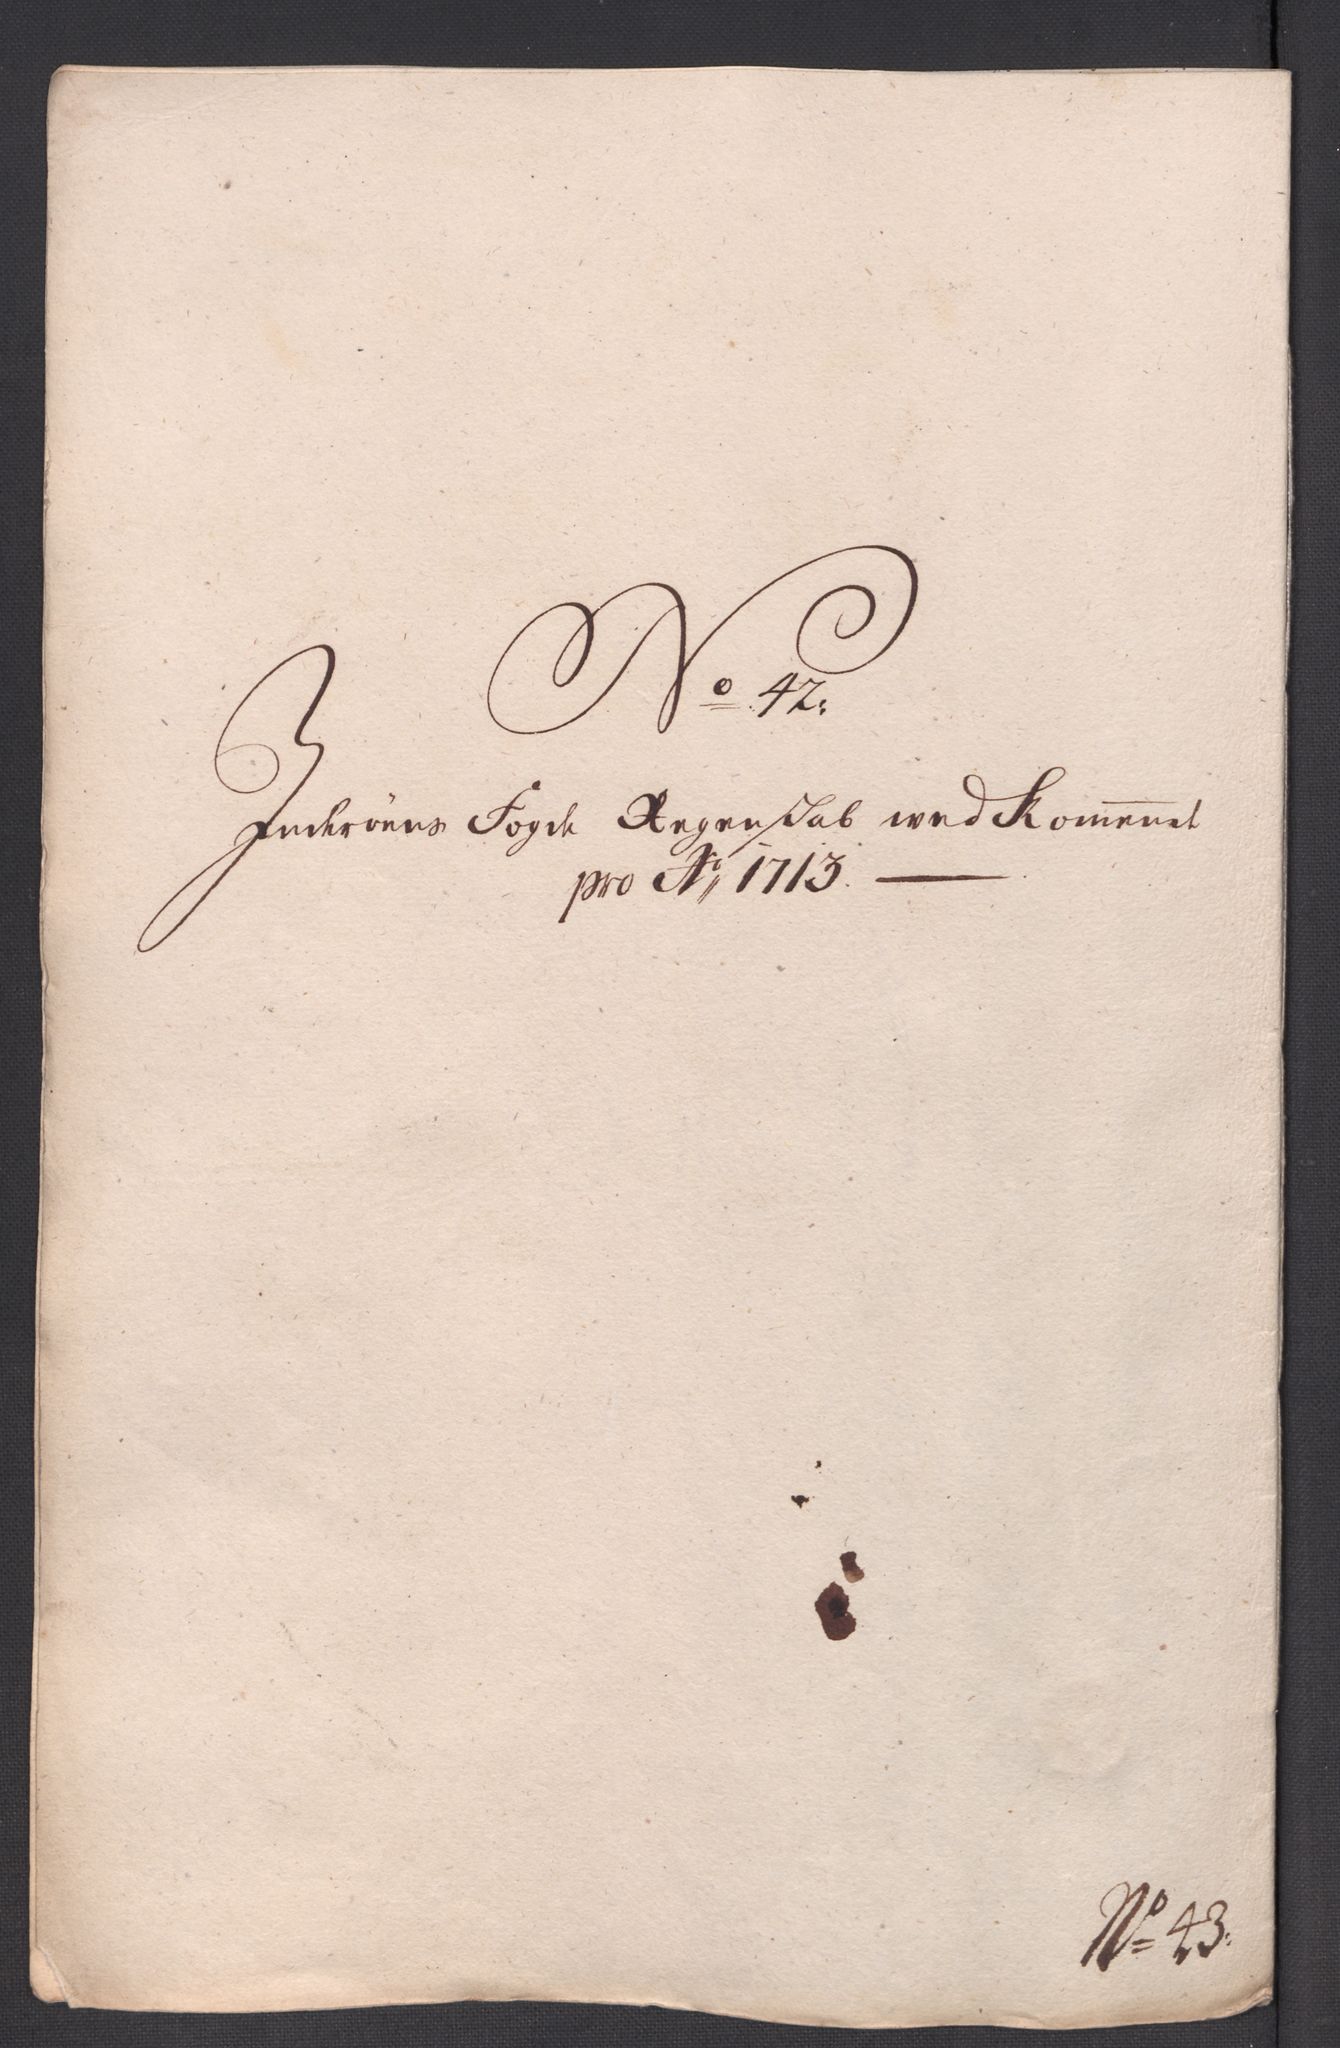 No 42:
Inderöens Fogde Regenskab wed Kommend
pro Ao 1713.
No 43: